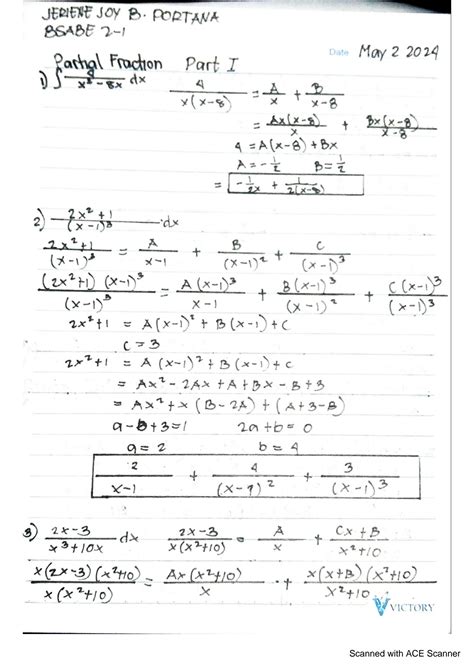 JERIENE JOY B. PORTANA
BSABE 2-1
Date May 2 2024
Partial Fraction Part I
1) ∫ / x² - 8x dx 4 / x(x-8) = A/x + B/x-8
= Ax(x-8) / x + Bx(x-8) / x-8
4 = A(x-8) + Bx
A = -1/2 B = 1/2
= -1/2x + 1/2(x-8)
2) 2x² + 1 / (x-1)³ dx
2x²+1 / (x-1)³ = A / x-1 + B / (x-1)² + C / (x-1)³
(2x²+1) (x-1)³ / (x-1)³ = A(x-1)³ / x-1 + B(x-1)³ / (x-1)² + C(x-1)³ / (x-1)³
2x²+1 = A(x-1)² + B(x-1) + C
C = 3
2x²+1 = A(x-1)² + B(x-1) + C
= Ax² - 2Ax + A + Bx - B + 3
= Ax² + x(B-2A) + (A+3-B)
a-b+3=1 2a+b=0
a=2 b=4
2 / x-1 + 4 / (x-1)² + 3 / (x-1)³
3) 2x-3 / x³+10x dx 2x-3 / x(x²+10) = A / x + Cx+B / x²+10
x(2x-3)(x²+10) / x(x²+10) = Ax(x²+10) / x + x(x+B)(x²+10) / x²+10
VICTORY
Scanned with ACE Scanner